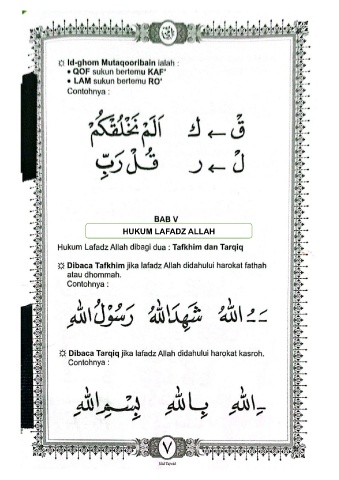 Id-ghom Mutaqooribain ialah :
• QOF sukun bertemu KAF'
• LAM sukun bertemu RO'
Contohnya :
قْ ← ك اَلَمْ نَخْلُقْكُمْ
لْ ← ر قُلْ رَبِّ
BAB V
HUKUM LAFADZ ALLAH
Hukum Lafadz Allah dibagi dua : Tafkhim dan Tarqiq
Dibaca Tafkhim jika lafadz Allah didahului harokat fathah
atau dhommah.
Contohnya :
ـَـُ اللهُ شَهِدَ اللهُ رَسُوْلُ اللهِ
Dibaca Tarqiq jika lafadz Allah didahului harokat kasroh.
Contohnya :
ـِ اللهِ بِاللهِ بِسْمِ اللهِ
٧